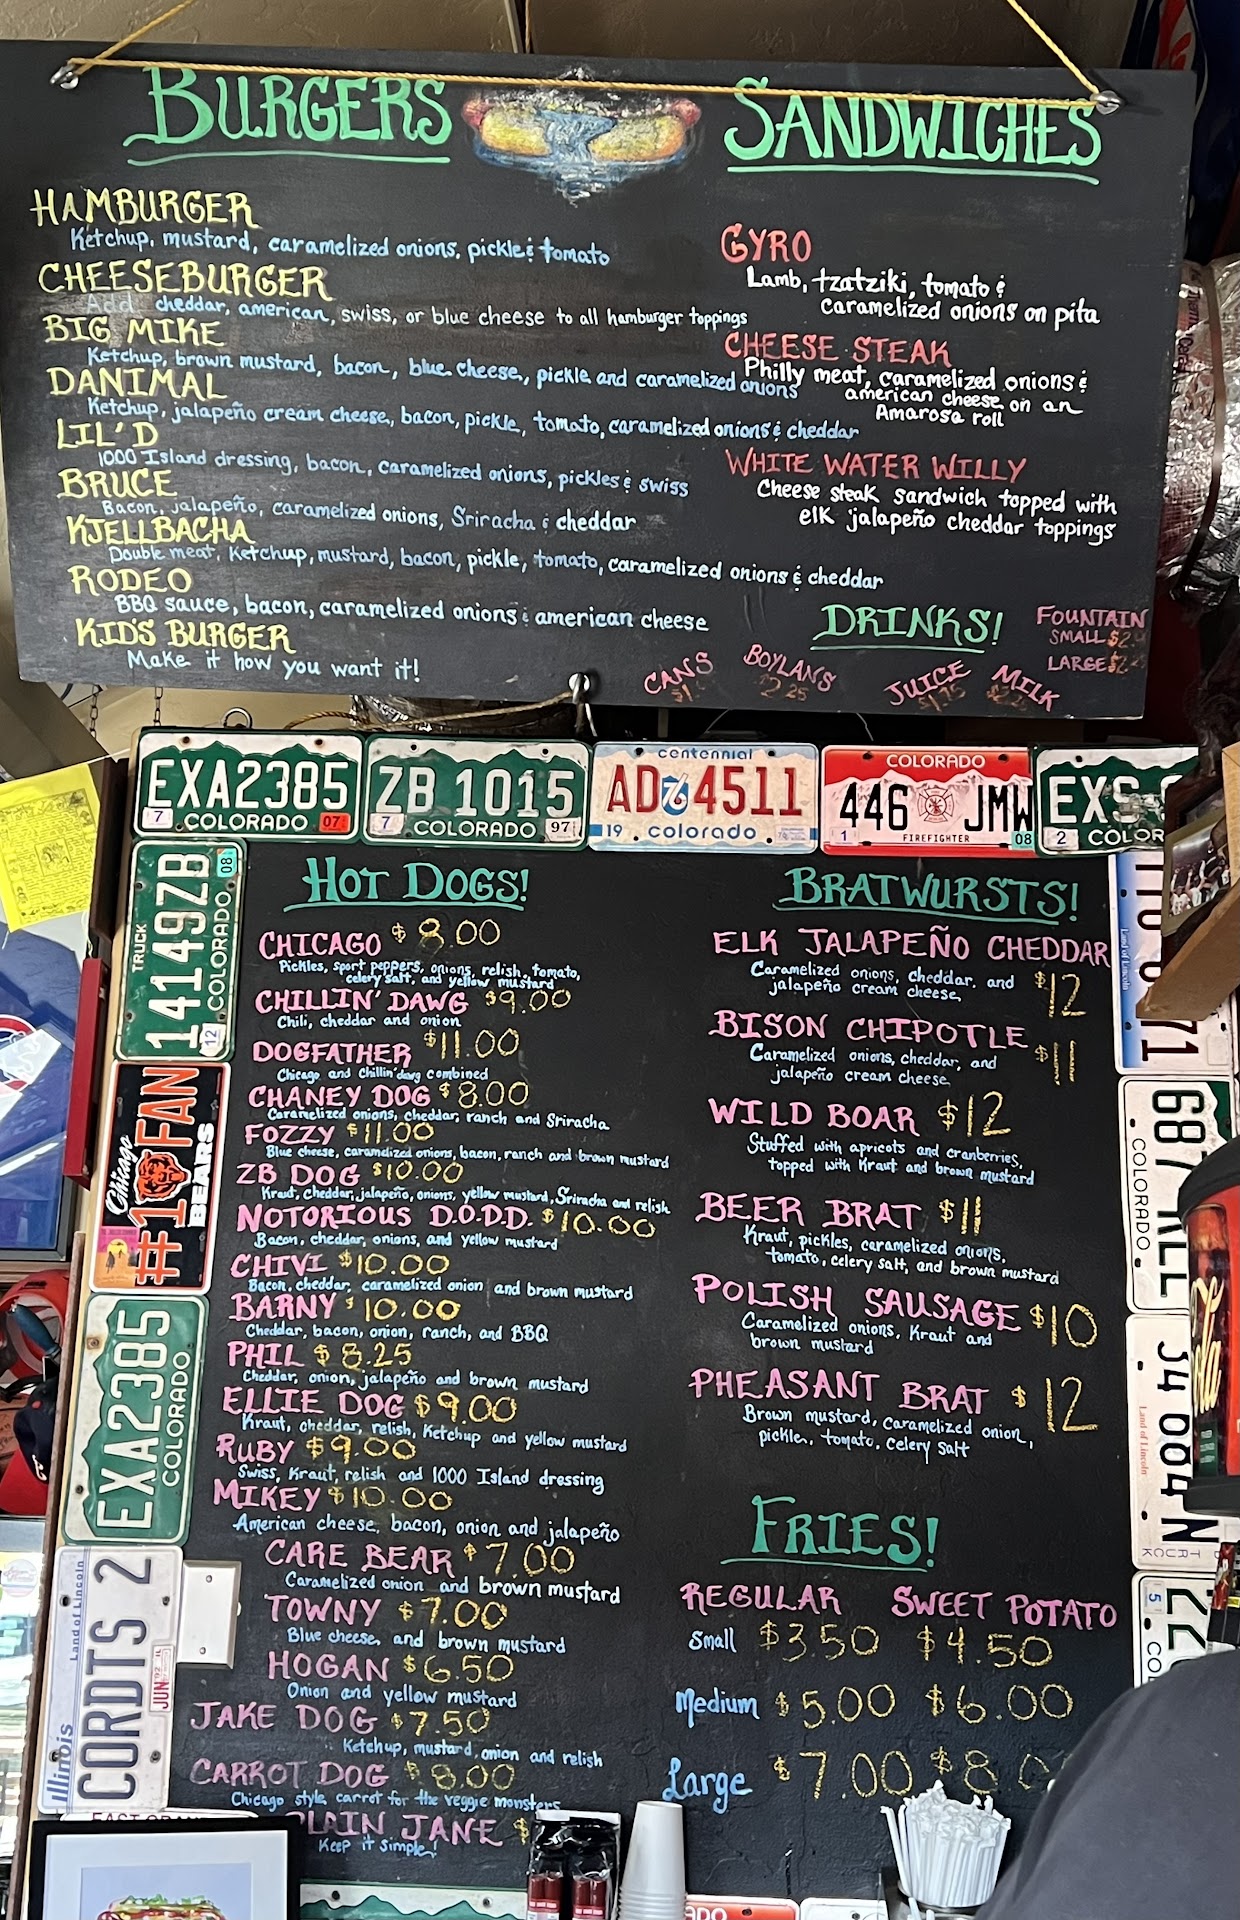 BURGERS
HAMBURGER
Ketchup, mustard, caramelized onions, pickle & tomato
CHEESEBURGER
Add cheddar, american, swiss, or blue cheese to all hamburger toppings
BIG MIKE
Ketchup, brown mustard, bacon, blue cheese, pickle and caramelized onions
DANIMAL
Ketchup, jalapeño cream cheese, bacon, pickle, tomato, caramelized onions & cheddar
LIL' D
1000 Island dressing, bacon, caramelized onions, pickles & swiss
BRUCE
Bacon, jalapeño, caramelized onions, Sriracha & cheddar
KJELLBACHA
Double meat, Ketchup, mustard, bacon, pickle, tomato, caramelized onions & cheddar
RODEO
BBQ sauce, bacon, caramelized onions & american cheese
KID'S BURGER
Make it how you want it!
SANDWICHES
GYRO
Lamb, tzatziki, tomato &
caramelized onions on pita
CHEESE STEAK
Philly meat, caramelized onions &
american cheese on an
Amarosa roll
WHITE WATER WILLY
Cheese steak sandwich topped with
elk jalapeño cheddar toppings
DRINKS!
CANS
BOYLANS
2.25
JUICE
MILK
FOUNTAIN
SMALL
LARGE
EXA2385
7 COLORADO 07
ZB 1015
7 COLORADO 97
centennial
AD 76 4511
19 colorado
COLORADO
446 JMW
1 FIREFIGHTER 08
EXS
2
TRUCK 14149ZB
COLORADO
08
12
Chicago
#1 FAN
BEARS
EXA2385
COLORADO
Land of Lincoln
CORDTS 2
Illinois
JUN
HOT DOGS!
CHICAGO $8.00
Pickles, sport peppers, onions, relish, tomato,
celery salt, and yellow mustard
CHILLIN' DAWG $9.00
Chili, cheddar and onion
DOGFATHER $11.00
Chicago and Chillin' dawg combined
CHANEY DOG $8.00
Caramelized onions, cheddar, ranch and Sriracha
FOZZY $11.00
Blue cheese, caramelized onions, bacon, ranch and brown mustard
ZB DOG $10.00
Kraut, cheddar, jalapeño, onions, yellow mustard, Sriracha and relish
NOTORIOUS D.O.D.D. $10.00
Bacon, cheddar, onions, and yellow mustard
CHIVI $10.00
Bacon, cheddar, caramelized onion and brown mustard
BARNY $10.00
Cheddar, bacon, onion, ranch, and BBQ
PHIL $8.25
Cheddar, onion, jalapeño and brown mustard
ELLIE DOG $9.00
Kraut, cheddar, relish, Ketchup and yellow mustard
RUBY $9.00
Swiss, Kraut, relish and 1000 Island dressing
MIKEY $10.00
American cheese, bacon, onion and jalapeño
CARE BEAR $7.00
Caramelized onion and brown mustard
TOWNY $7.00
Blue cheese and brown mustard
HOGAN $6.50
Onion and yellow mustard
JAKE DOG $7.50
Ketchup, mustard, onion and relish
CARROT DOG $8.00
Chicago style, carrot for the veggie monsters
PLAIN JANE $
Keep it simple!
BRATWURSTS!
ELK JALAPEÑO CHEDDAR
Caramelized onions, cheddar, and $12
jalapeño cream cheese
BISON CHIPOTLE
Caramelized onions, cheddar, and $11
jalapeño cream cheese
WILD BOAR $12
Stuffed with apricots and cranberries,
topped with Kraut and brown mustard
BEER BRAT $11
Kraut, pickles, caramelized onions,
tomato, celery salt, and brown mustard
POLISH SAUSAGE $10
Caramelized onions, Kraut and
brown mustard
PHEASANT BRAT $12
Brown mustard, caramelized onion,
pickle, tomato, celery salt
FRIES!
REGULAR SWEET POTATO
Small $3.50 $4.50
Medium $5.00 $6.00
Large $7.00 $8.0
Land of Lincoln
71
687
COLORADO
J4 084 N
Land of Lincoln
TRUCK
5